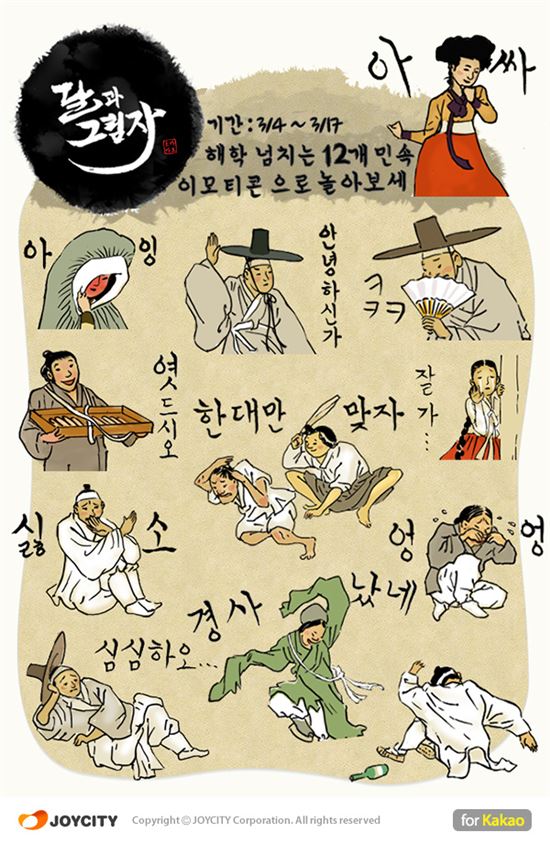 달과
그림자
기간 : 3/4 ~ 3/17
해학 넘치는 12개 민속
이모티콘 으로 놀아보세
아 싸
아 잉
안녕하신가
ㅋㅋㅋ
엿드시오
한대만 맞자
잘가...
싫소
엉 엉
경사 났네
심심하오...
JOYCITY Copyright ⓒ JOYCITY Corporation. All rights reserved
for Kakao